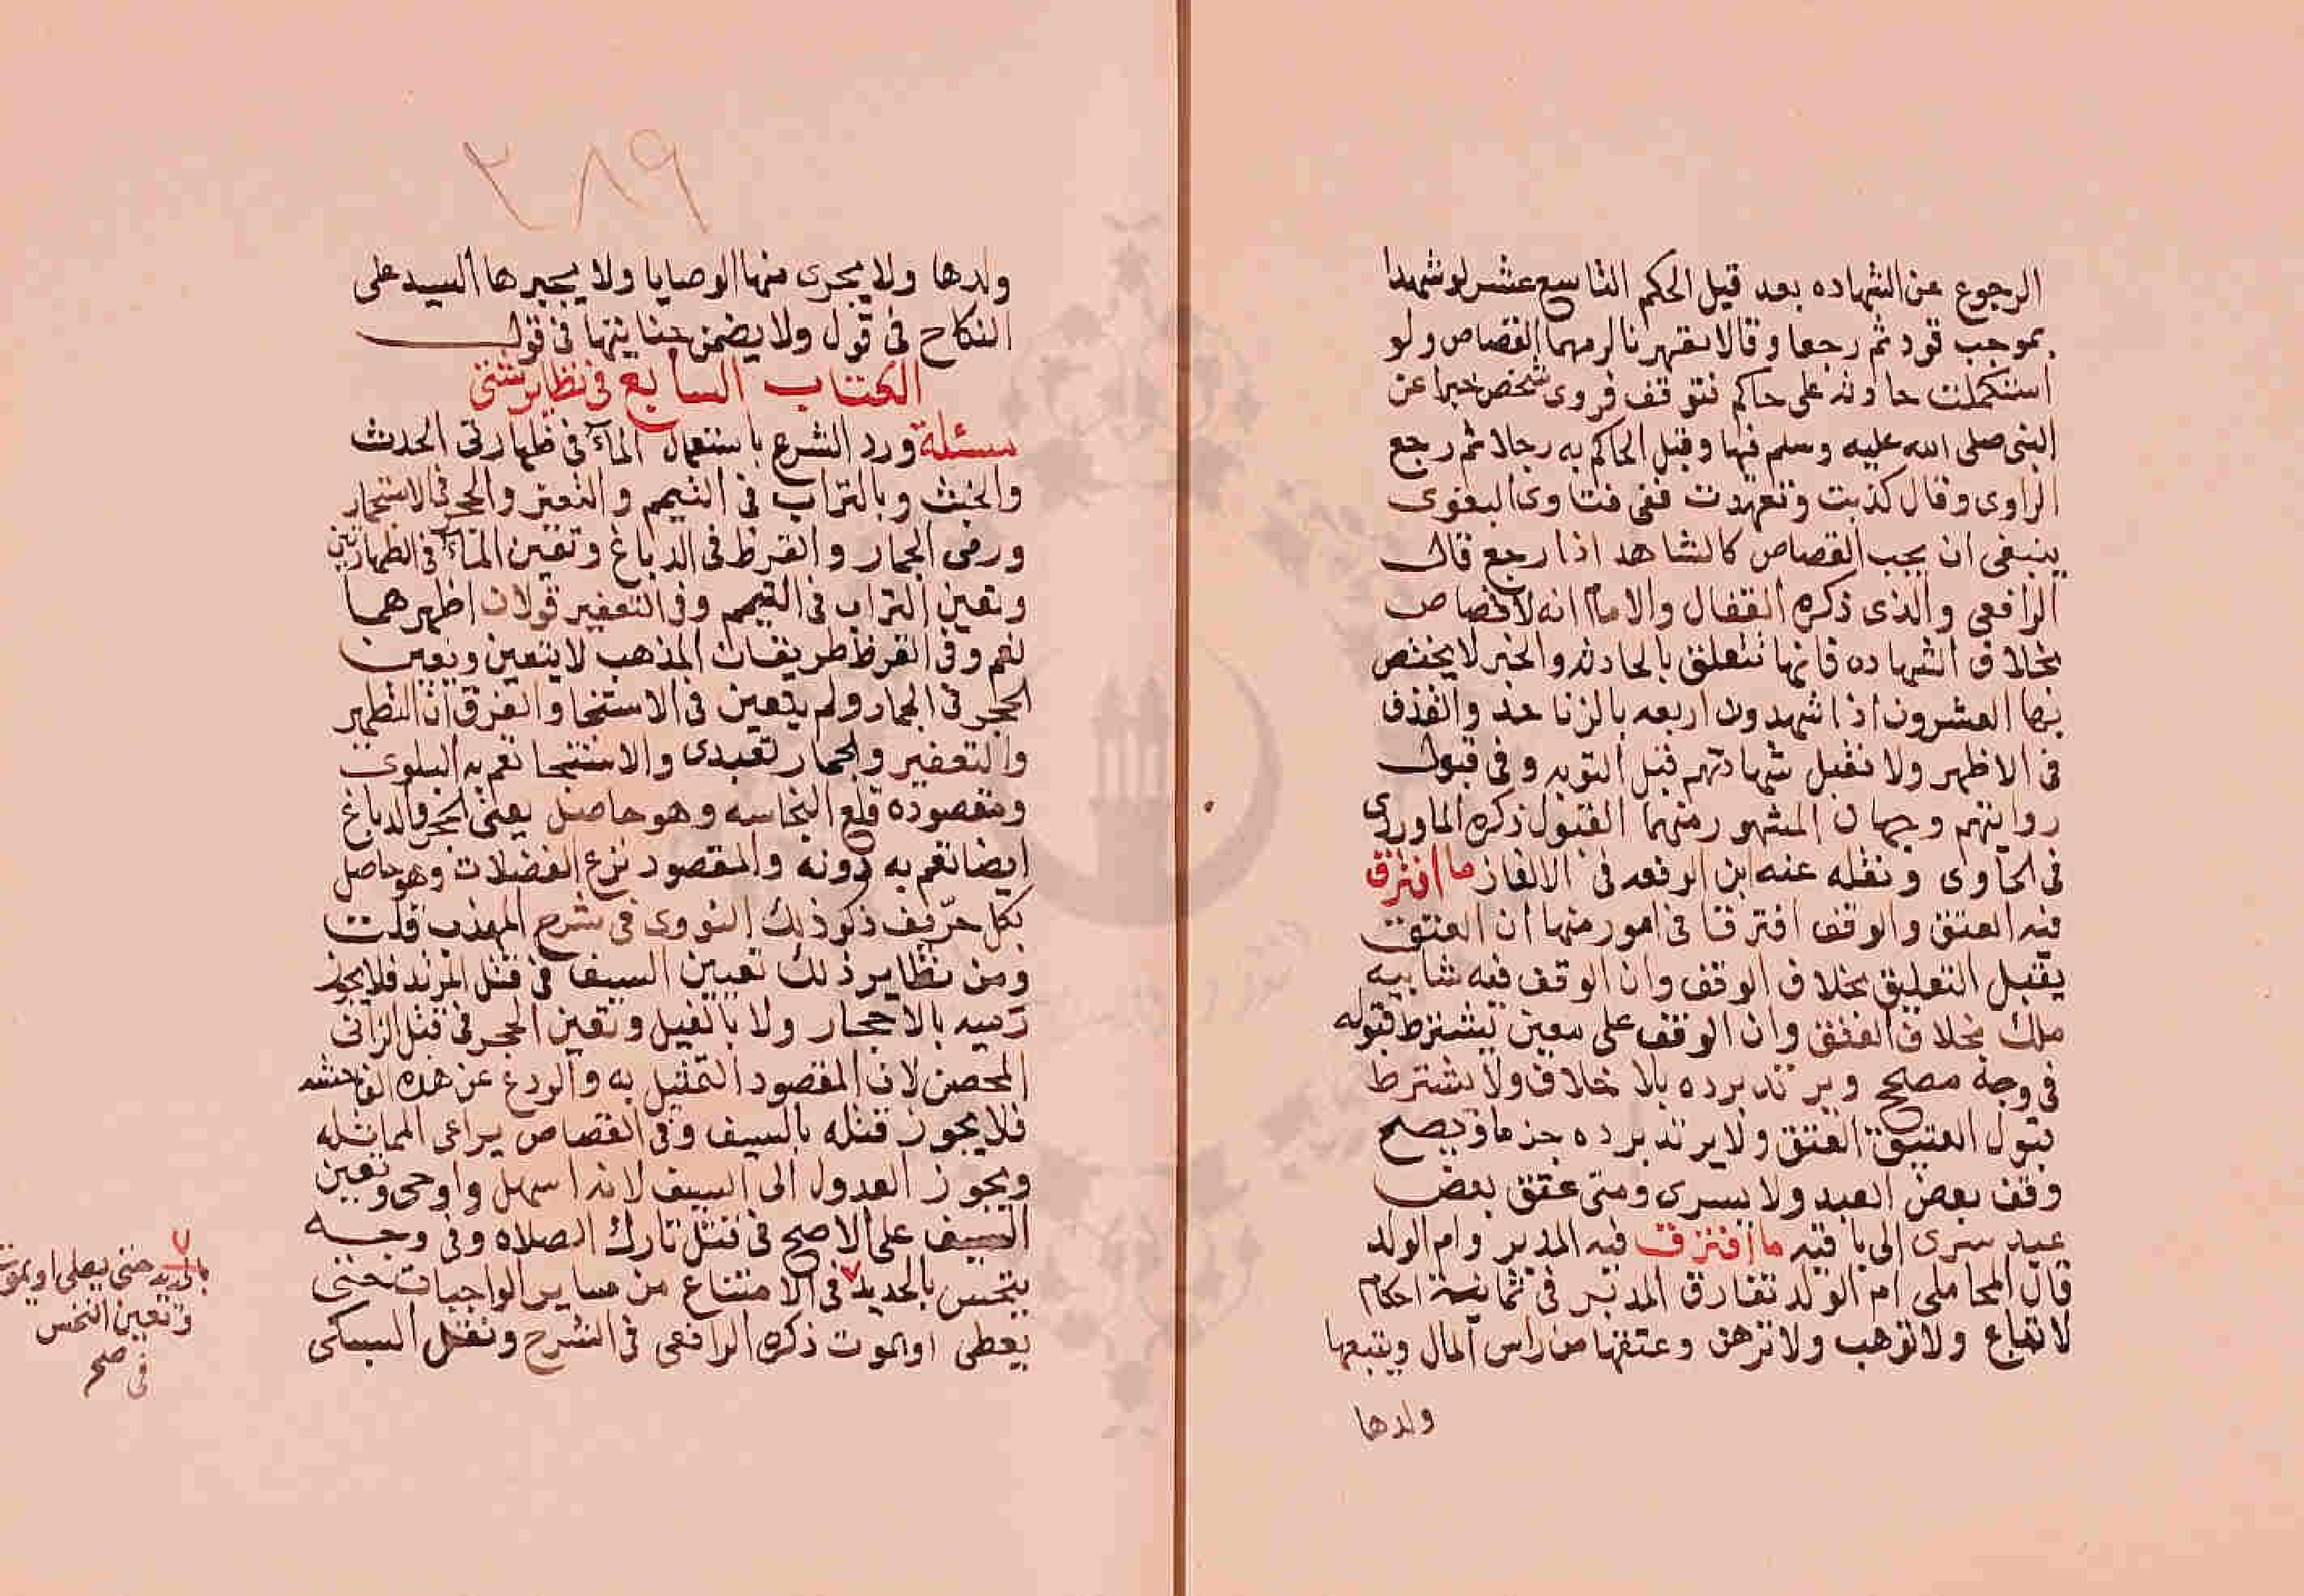 الرجوع عن الشهاده بعد قبل الحكم التاسع عشر لو شهدا
بموجب قود ثم رجعا وقالا تعمدنا لزمهما القصاص ولو
اشكلت حادثه على حاكم فتوقف فروى شخص خبرا عن
النبي صلى الله عليه وسلم فيها وقتل الحاكم به رجلا ثم رجع
الراوى وقال كذبت وتعمدت ففى فتاوى البغوى
ينبغى ان يجب القصاص كالشاهد اذا رجع قال
الرافعى والذى ذكره القفال والامام انه لا قصاص
بخلاف الشهاده فانها تتعلق بالحادثه والخبر لا يختص
بها العشرون اذا شهد دون اربعه بالزنا حد والقذف
فى الاظهر ولا تقبل شهادتهم قبل التوبه وفى قبول
روايتهم وجهان المشهور منهما القبول ذكره الماوردى
فى الحاوى ونقله عنه ابن الرفعه فى الالغاز ما افترق
فيه العتق والوقف افترقا فى امور منها ان العتق
يقبل التعليق بخلاف الوقف وان الوقف فيه شايبه
ملك بخلاف العتق وان الوقف على معين يشترط قبوله
فى وجه مصحح ويرتد برده بلا خلاف ولا يشترط
قبول العتيق العتق ولا يرتد برده جزما ويصح
وقف بعض العبد ولا يسرى ومتى عتق بعض
عبد سرى الى باقيه ما افترق فيه المدبر وام الولد
قال المحاملى ام الولد تفارق المدبر فى ثمانية احكام
لا تباع ولا توهب ولا ترهن وعتقها من راس المال ويتبعها
ولدها
٢٨٩
ولدها ولا يجرى فيها الوصايا ولا يجبرها السيد على
النكاح فى قول ولا يضمن جنايتها فى قول
الكتاب السابع فى نظاير شتى
مسئلة ورد الشرع باستعمال المآء فى طهارتى الحدث
والخبث وبالتراب فى التيمم والتعفير والحجر فى الاستجمار
ورمى الجمار والقرظ فى الدباغ وتعين المآء فى الطهارتين
وتعين التراب فى التيمم وفى التعفير قولان اظهرهما
نعم وفى القرظ طريقان المذهب لا يتعين وتعين
الحجر فى الجمار ولم يتعين فى الاستنجا والفرق ان التطهر
والتعفير والجمار تعبدى والاستنجا تعم به البلوى
ومقصوده قلع النجاسه وهو حاصل بغير الحجر والدباغ
ايضا تعم به دونه والمقصود نزع الفضلات وهو حاصل
بكل حرّيف ذكر ذلك النووى فى شرح المهذب قلت
ومن نظاير ذلك تعيين السيف فى قتل المرتد فلا يجوز
رميه بالاحجار ولا بالنبل وتعين الحجر فى قتل الزانى
المحصن لان المقصود التمثيل به والردع عن هذه الفاحشه
فلا يجوز قتله بالسيف وفى القصاص يراعى المماثله
ويجوز العدول الى السيف لانه اسهل واوحى وتعين
السيف على الاصح فى قتل تارك الصلاه وفى وجه
ينخس بالحديد فى الامتناع من ساير الواجبات حتى
يعطى او يموت ذكره الرافعى فى الشرح ونقل السبكى
حتى يصلى او يموت
وتعين النخس
فى صح